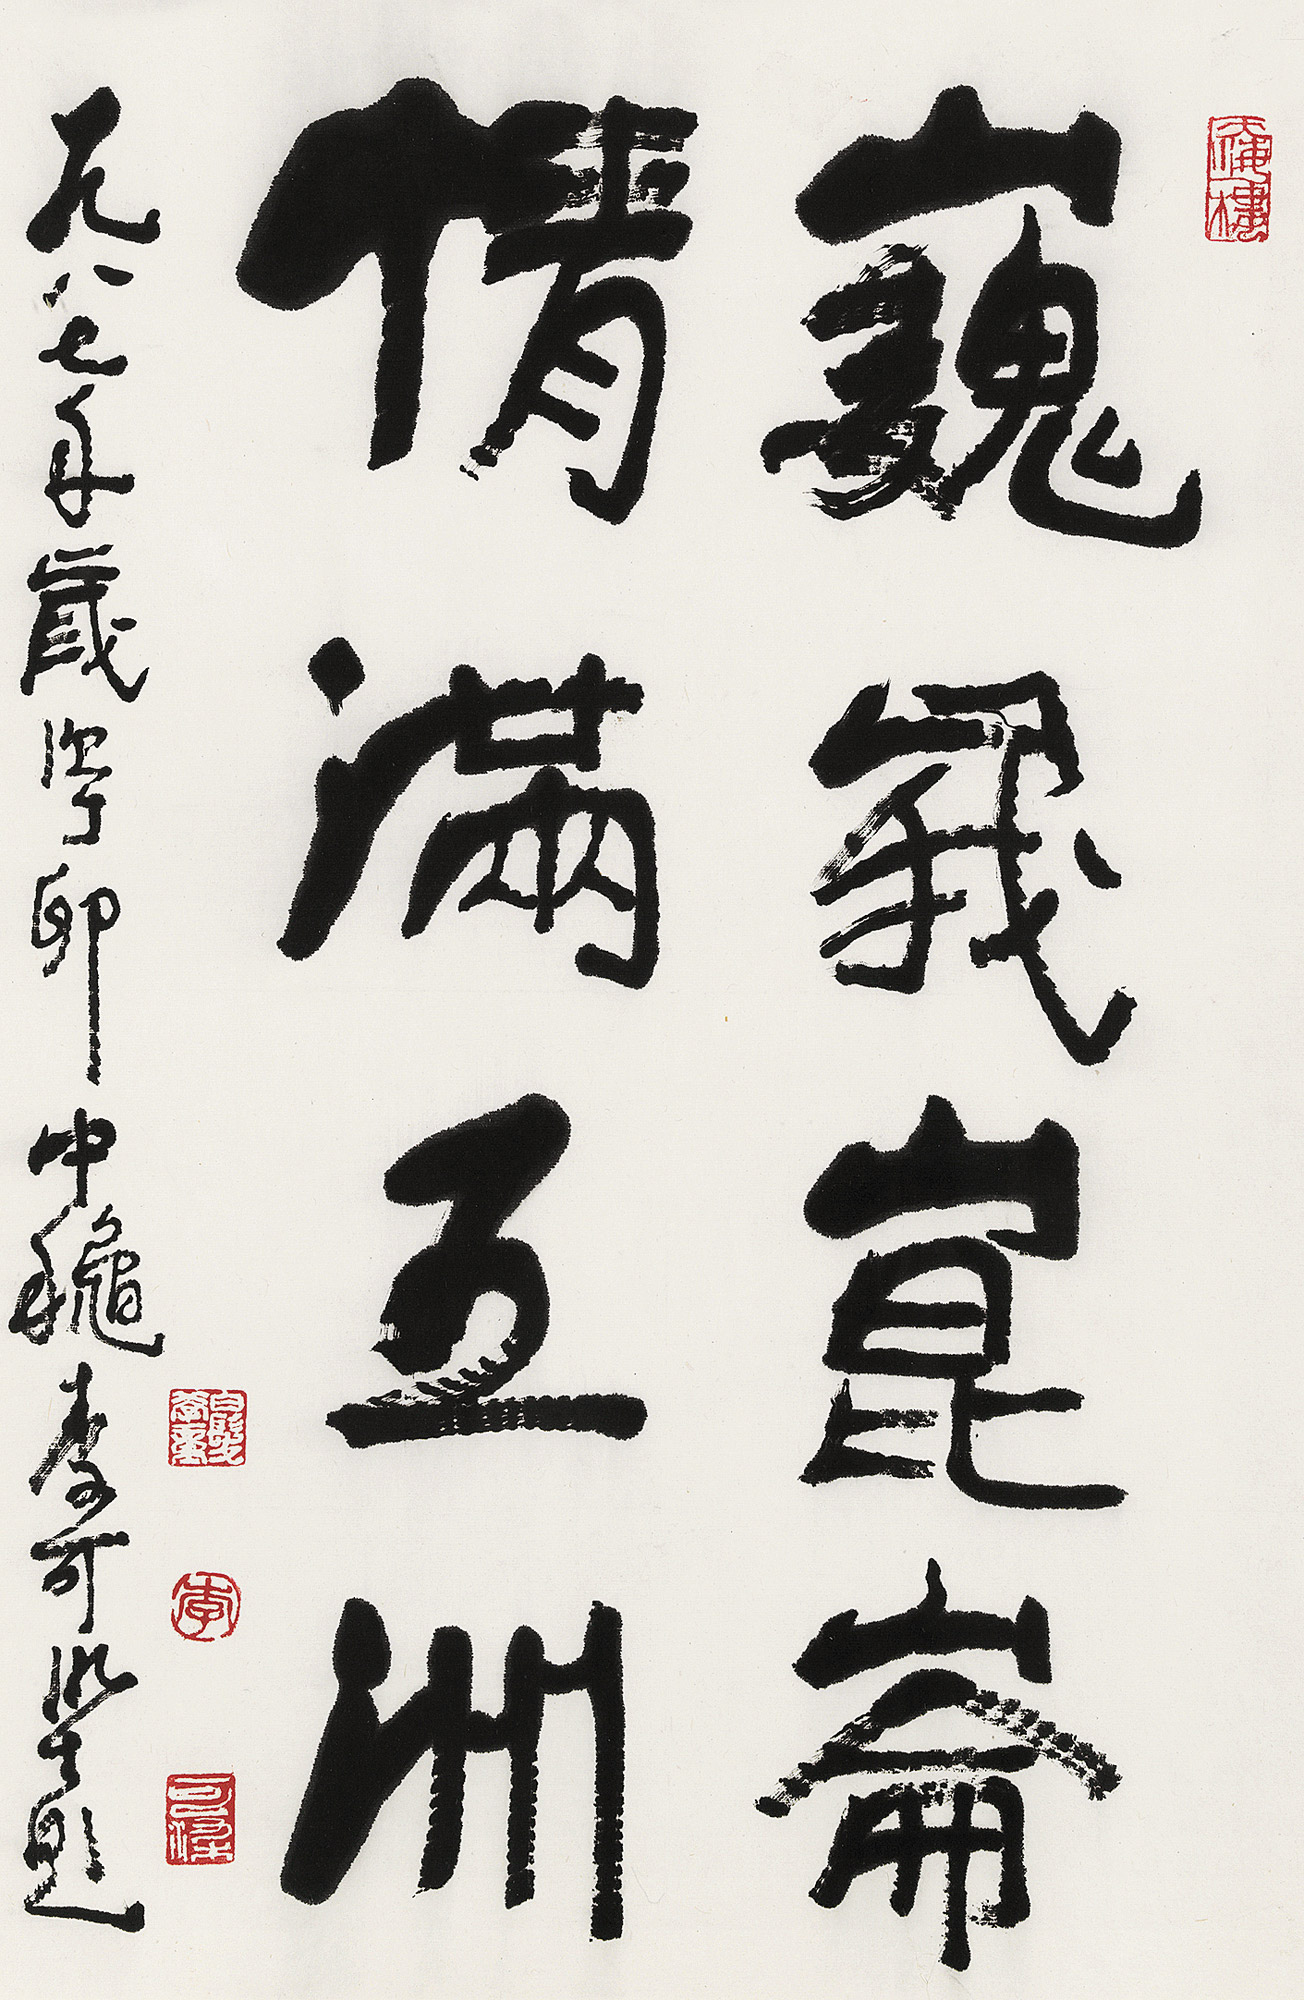 天海樓
巍峨崑崙
情滿五洲
一九八七年歲次丁卯中穐李可染題
白髮學童
李
可染